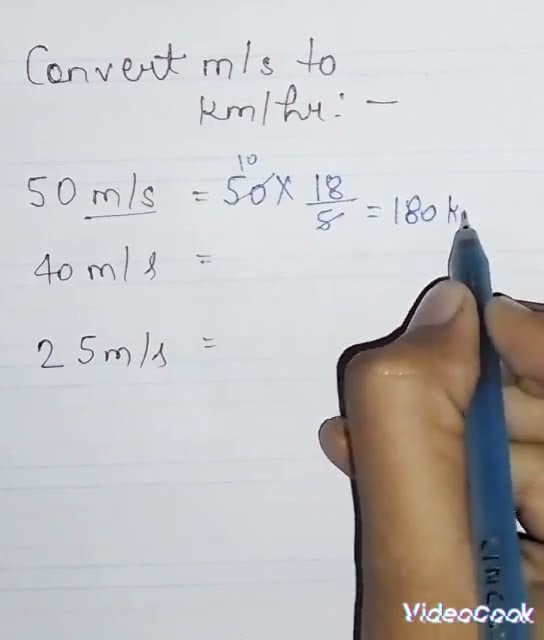 Convert m/s to
km/hr: -
10
50 m/s = 50 × 18/5 = 180 k
40 m/s =
25 m/s =
VideoCook